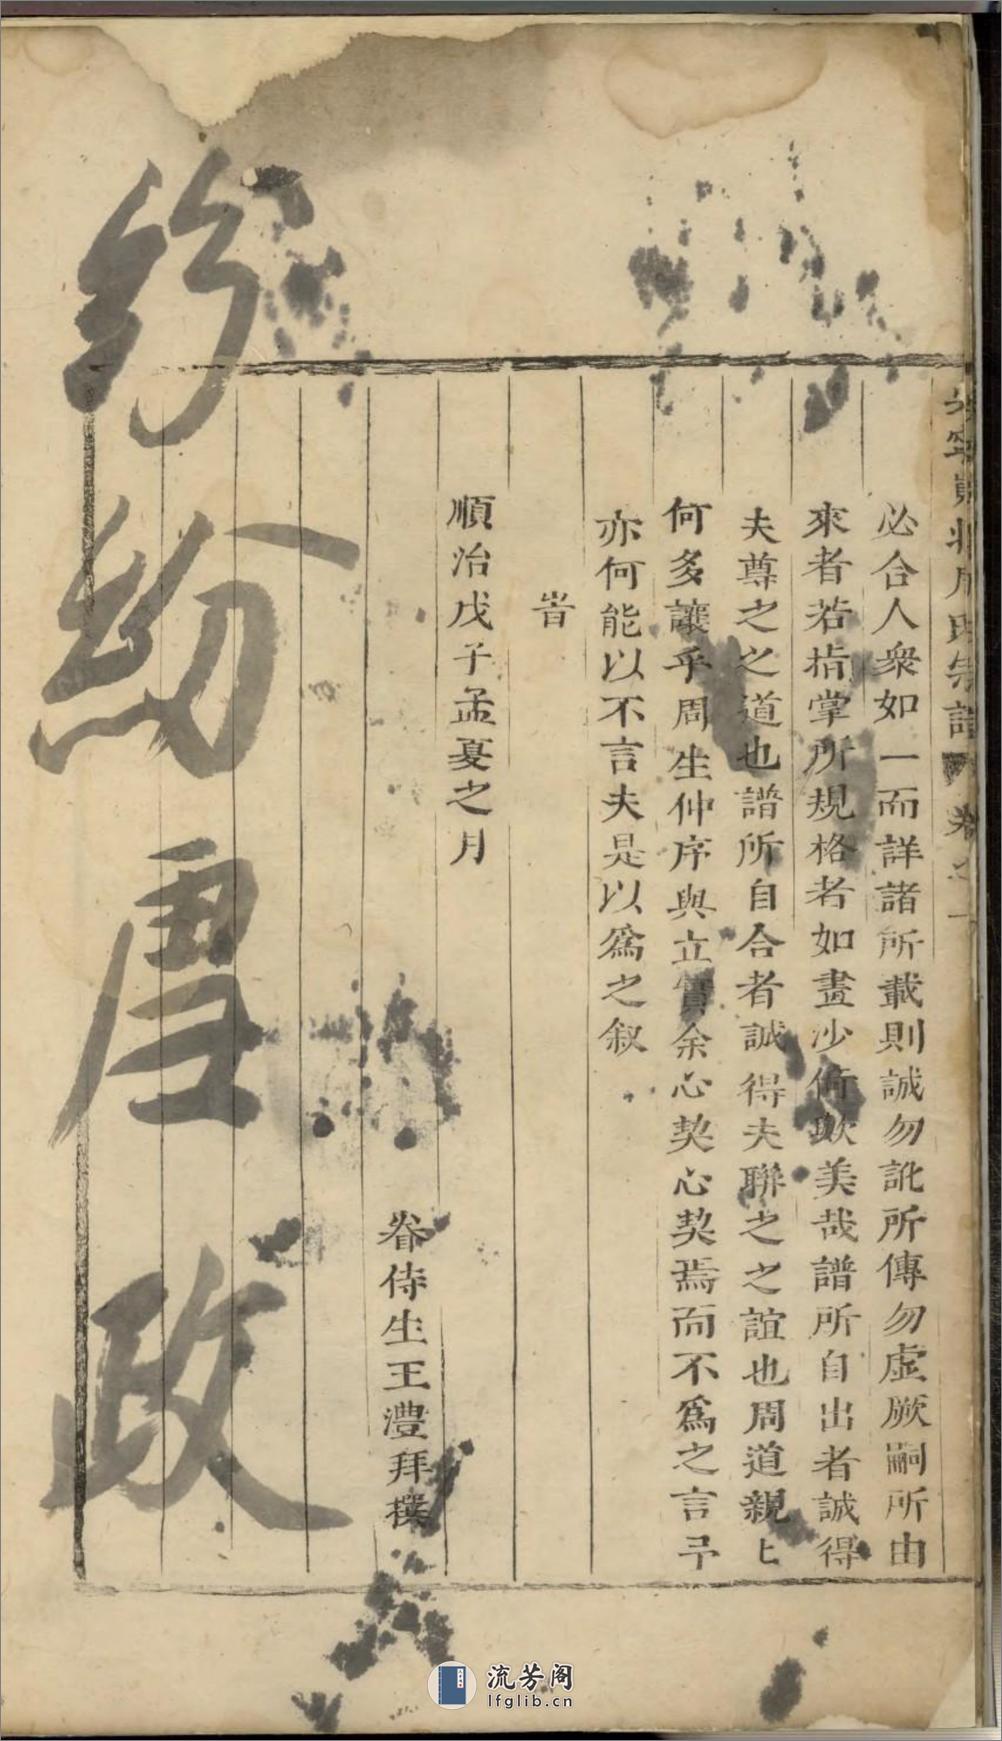 必合人衆如一而詳諸所載則誠勿訛所傳勿虛厥嗣所由
來者若指掌所規格者如畫沙倚歟美哉譜所自出者誠得
夫尊之之道也譜所自合者誠得夫聯之之誼也周道親上
何多讓乎周生仲序與立實余心契心契焉而不爲之言予
亦何能以不言夫是以爲之叙
旹
順治戊子孟夏之月
眷侍生王澧拜撰
紛紛唐政
周氏宗譜 卷之一
流芳阁
lfglib.cn